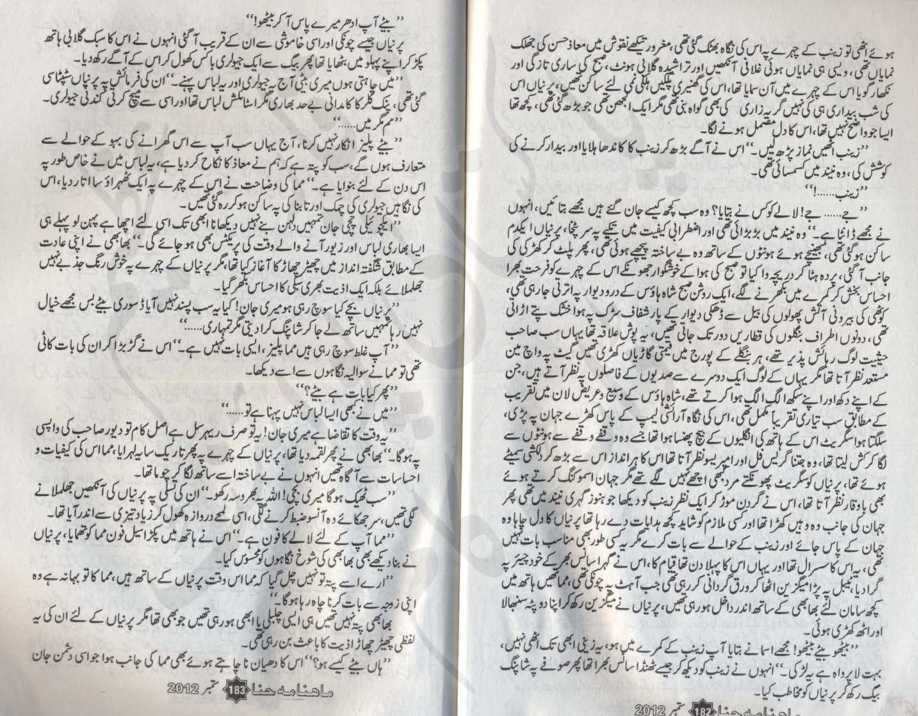 ہوئے اٹھی تو زینب کے چہرے پہ اس کی نگاہ بھٹک گئی تھی، مغرور تیکھے نقوش میں معاذ حسن کی جھلک
نمایاں تھی، ویسی ہی نمایاں ہوئی غلافی آنکھیں اور تراشیدہ گلابی ہونٹ، صبح کی ساری تازگی اور
نکھار گویا اس کے چہرے میں آن سمایا تھا، اس کی گھنیری پلکیں ہلکی نمی لئے ساکن تھیں، پرنیاں اس
کی شب بیداری ہی کی نہیں گریہ زاری کی بھی گواہ بنی تھی مگر ایک الجھن تھی جو بڑھ گئی تھی، کچھ تھا
ایسا جو واضح نہیں تھا، اس کا دل مضمحل ہونے لگا۔
”زینب اٹھیں نماز پڑھ لیں۔“ اس نے آگے بڑھ کر زینب کا کاندھا ہلایا اور بیدار کرنے کی
کوشش کی، وہ نیند میں کسمسائی تھی۔
”زینب......!“
”جے...... جے! لالے کو کس نے بتایا؟ وہ سب کچھ کیسے جان گئے ہیں مجھے بتائیں، انہوں
نے مجھے ڈانٹا ہے۔“ وہ نیند میں بڑبڑائی تھی اور اضطرابی کیفیت میں تکیے پہ سر پٹخا، پرنیاں ایکدم
ساکن ہو گئی تھی، بھینچے ہوئے ہونٹوں کے ساتھ وہ بے ساختہ پیچھے ہوئی تھی، پھر پلٹ کر کھڑکی کی
جانب آ گئی، پردہ ہٹا کر دریچہ وا کیا تو صبح کی ہوا کے خوشگوار جھونکے اس کے چہرے کو فرحت بھرا
احساس بخش کر کمرے میں بکھرنے لگے، ایک روشن صبح شاہ ہاؤس کے در و دیوار پہ اترتی جا رہی تھی،
کوٹھی کی بیرونی آتش پھولوں کی بیل سے ڈھکی دیوار کے پار شفاف سڑک پہ ہوا خشک پتے اڑاتی
تھی، دونوں اطراف بنگلوں کی قطاریں دور تک جاتی تھیں، یہ پوش علاقہ تھا یہاں سب صاحب
حیثیت لوگ رہائش پذیر تھے، ہر بنگلے کے پورچ میں قیمتی گاڑیاں کھڑی تھیں گیٹ پہ واچ مین
مستعد نظر آتا تھا مگر یہاں کے لوگ ایک دوسرے سے صدیوں کے فاصلوں پہ نظر آتے ہیں، جن
کے اپنے دکھ اور اپنے سکھ الگ الگ ہوا کرتے تھے، شاہ ہاؤس کے وسیع و عریض لان میں تقریب
کے مطابق سب تیاری تقریباً مکمل تھی، اس کی نگاہ آرائشی لیمپ کے پاس کھڑے جہان پہ پڑی،
سلگتا ہوا سگریٹ اس کے ہاتھ کی انگلیوں کے بیچ پھنسا ہوا تھا جسے وہ وقفے وقفے سے ہونٹوں سے
لگا کر کش لیتا تھا، وہ جتنا گریس فل اور امپریسو نظر آتا تھا اس کا ہر انداز اس سے بڑھ کر دلکشی سمیٹے
ہوئے تھا، پرنیاں کو سگریٹ پھونکتے مرد بھی اچھے نہیں لگے تھے مگر جہان اسموکنگ کرتے ہوئے
بھی باوقار نظر آتا تھا، اس نے گردن موڑ کر ایک نظر زینب کو دیکھا جو ہنوز گہری نیند میں تھی پھر
جہان کی جانب وہ وہیں کھڑا تھا اور کسی ملازم کو شاید کچھ ہدایات دے رہا تھا پرنیاں کا دل چاہا وہ
جہان کے پاس جائے اور زینب کے حوالے سے بات کرے مگر یہ کسی طور بھی مناسب بات نہیں
تھی، یہ اس کا سسرال تھا اور یہاں اس کا پہلا دن تھا قیام کا، اس نے گہرا سانس بھر کے خود چیئر پہ
گرا دیا، ٹیبل پہ پڑا میگزین اٹھا کر ورق گردانی کر رہی تھی جب آہٹ پہ چونکی تھی، مما تھیں ہاتھ میں
کچھ سامان لئے بھابھی کے ساتھ اندر داخل ہو رہی تھیں، پرنیاں نے میگزین رکھ کر اپنا دوپٹہ سنبھالا
اور اٹھ کھڑی ہوئی۔
”بیٹھو بیٹے بیٹھو! مجھے اسما نے بتایا آپ زینب کے کمرے میں ہو، یہ زینی ابھی تک اٹھی نہیں،
بہت لا پرواہ ہے یہ لڑکی۔“ انہوں نے زینب کو دیکھ کر جیسے ٹھنڈا سانس بھرا تھا پھر صوفے پہ شاپنگ
بیگ رکھ کر پرنیاں کو مخاطب کیا۔
ماہنامہ حنا 182 ستمبر 2012
”بیٹے آپ ادھر میرے پاس آ کر بیٹھو!“
پرنیاں جیسے چونکی اور اسی خاموشی سے ان کے قریب آ گئی انہوں نے اس کا سبک گلابی ہاتھ
پکڑ کر اپنے پہلو میں بٹھایا تھا پھر بیگ سے ایک جیولری باکس کھول کر اس کے آگے رکھ دیا۔
”میں چاہتی ہوں میری بیٹی آج یہ جیولری اور یہ لباس پہنے۔“ ان کی فرمائش پہ پرنیاں سٹپٹا سی
گئی تھی، پنک کلر کا کامدانی بے حد بھاری مگر اسٹائلش لباس تھا اور اسی سے میچ کرتی کندنی جیولری۔
”مم مگر میں......“
”بیٹے پلیز انکار نہیں کرنا، آج یہاں سب آپ سے اس گھرانے کی بہو کے حوالے سے
متعارف ہوں گے، سب کو پتہ ہے کہ ہم نے معاذ کا نکاح کر دیا ہے، یہ لباس میں نے خاص طور پہ
اس دن کے لئے بنوایا ہے۔“ مما کی وضاحت نے اس کے چہرے پہ ایک ٹھہراؤ سا اتار دیا، اس
کی نگاہیں جیولری کی چمک اور تابنا کی پہ ساکن ہو کر رہ گئی تھیں۔
”ایکچو ئیلی چچی جان تمہیں دلہن بنے نہیں دیکھا نا ابھی تک اسی لئے اچھا ہے پہن لو پہلے ہی
ایسا بھاری لباس اور زیور آنے والے وقت کی پریکٹس بھی ہو جائے گی۔“ بھابھی نے اپنی عادت
کے مطابق شگفتہ انداز میں چھیڑ چھاڑ کا آغاز کیا تھا، مگر پرنیاں کے چہرے پہ خوش رنگ جذبے نہیں
جھلملائے بلکہ ایک اذیت بھری تنگی کا احساس بکھر گیا۔
”پرنیاں بچے کیا سوچ رہی ہو میری جان! کیا یہ سب پسند نہیں آیا ڈسوری بیٹے بس مجھے خیال
نہیں رہا تمہیں ساتھ لے جا کر شاپنگ کرا دیتی مگر تمہاری......“
”آپ غلط سوچ رہی ہیں مما پلیز، ایسی بات نہیں ہے۔“ اس نے گڑبڑا کر ان کی بات کاٹی
تھی تو ممانے سوالیہ نگاہوں سے اسے دیکھا۔
”پھر کیا بات ہے بیٹے؟“
”میں نے کبھی ایسا لباس نہیں پہنا ہے تو......“
”یہ وقت کا تقاضا ہے میری جان! یہ تو صرف ریہرسل ہے اصل کام تو دیور صاحب کی واپسی
پہ ہو گا۔“ بھابھی نے پھر لقمہ دیا تھا، پرنیاں کے چہرے پہ پھر تاریک سایہ لہرایا، مما اس کی کیفیات و
احساسات سے آگاہ تھیں انہوں نے بے ساختہ اسے ساتھ لگا کر چوما تھا۔
”سب ٹھیک ہو گا میری بچی! اللہ پہ بھروسہ رکھو۔“ ان کی تسلی پہ پرنیاں کی آنکھیں جھلملانے
لگی تھیں، سر جھکائے وہ آنسو ضبط کرنے لگی، اسی لمحے دروازہ کھول کر زیاد تیزی سے اندر آیا تھا۔
”مما آپ کے لئے لالے کا فون ہے۔“ اس نے ہاتھ میں پکڑا سیل فون مما کو تھمایا، پرنیاں
نے بنا دیکھے بھی بھابھی کی شوخ نگاہوں کو محسوس کیا۔
”ارے اسے پتہ تو نہیں چل گیا کہ مما اس وقت پرنیاں کے ساتھ ہیں، مما کا تو بہانہ ہے وہ
اپنی زوجہ سے بات کرنا چاہ رہا ہو گا۔“
بھابھی پتہ نہیں تھیں ہی ایسی چلبلی یا ابھی ہو رہی تھیں جو بھی تھا مگر پرنیاں کے لئے ان کی یہ
لفظی چھیڑ چھاڑ اذیت کا باعث بن رہی تھی۔
”ہاں بیٹے کیسے ہو؟“ اس کا دھیان نا چاہتے ہوئے بھی مما کی جانب ہوا جو اسی دشمن جان
ماہنامہ حنا 183 ستمبر 2012